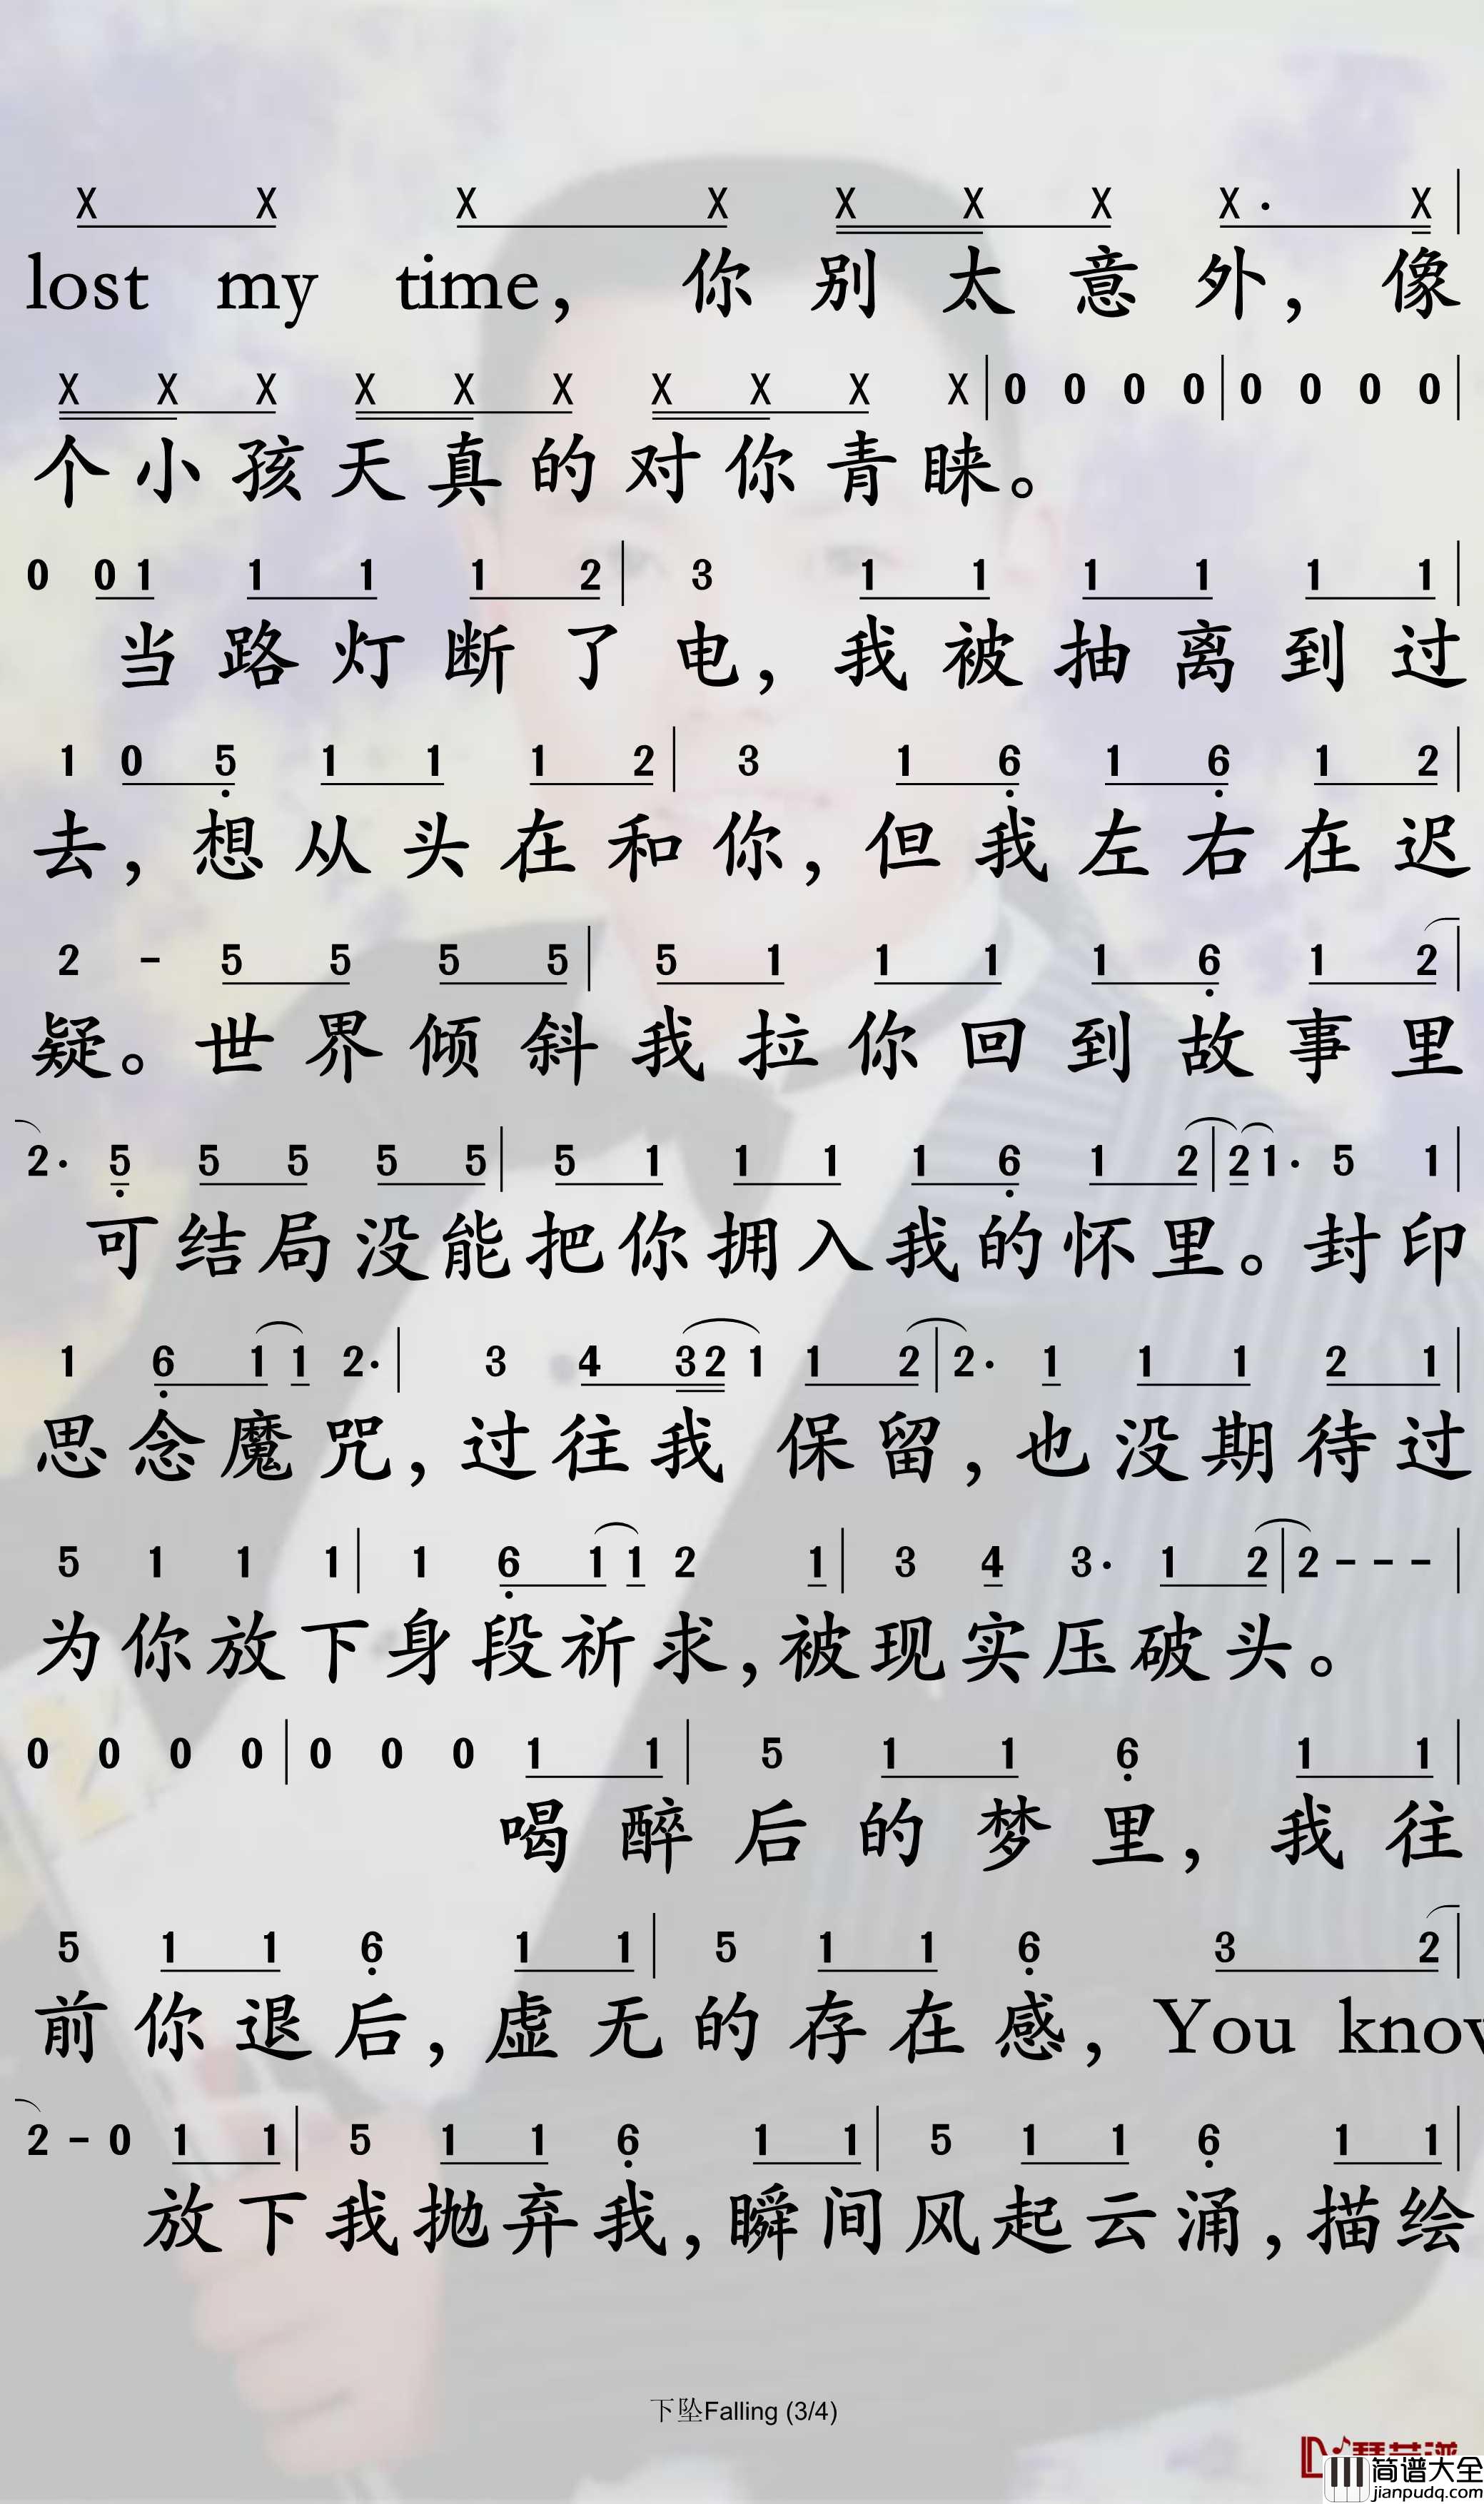 X X X X X X X X· X
lost my time, 你别太意外, 像
X X X X X X X X X X | 0 0 0 0 | 0 0 0 0 |
个小孩天真的对你青睐。
0 0 1 1 1 1 2 | 3 1 1 1 1 1 1 |
当路灯断了电, 我被抽离到过
1 0 5 1 1 1 2 | 3 1 6 1 6 1 2 |
去, 想从头在和你, 但我左右在迟
2 - 5 5 5 5 | 5 1 1 1 1 6 1 2 |
疑。世界倾斜我拉你回到故事里
2· 5 5 5 5 5 | 5 1 1 1 1 6 1 2 | 2 1· 5 1 |
可结局没能把你拥入我的怀里。封印
1 6 1 1 2· | 3 4 3 2 1 1 2 | 2· 1 1 1 2 1 |
思念魔咒, 过往我保留, 也没期待过
5 1 1 1 | 1 6 1 1 2 1 | 3 4 3· 1 2 | 2 - - - |
为你放下身段祈求, 被现实压破头。
0 0 0 0 | 0 0 0 1 1 | 5 1 1 6 1 1 |
喝醉后的梦里, 我往
5 1 1 6 1 1 | 5 1 1 6 3 2 |
前你退后, 虚无的存在感, You know
2 - 0 1 1 | 5 1 1 6 1 1 | 5 1 1 6 1 1 |
放下我抛弃我, 瞬间风起云涌, 描绘
下坠Falling (3/4)
简谱大全
jianpudq.com